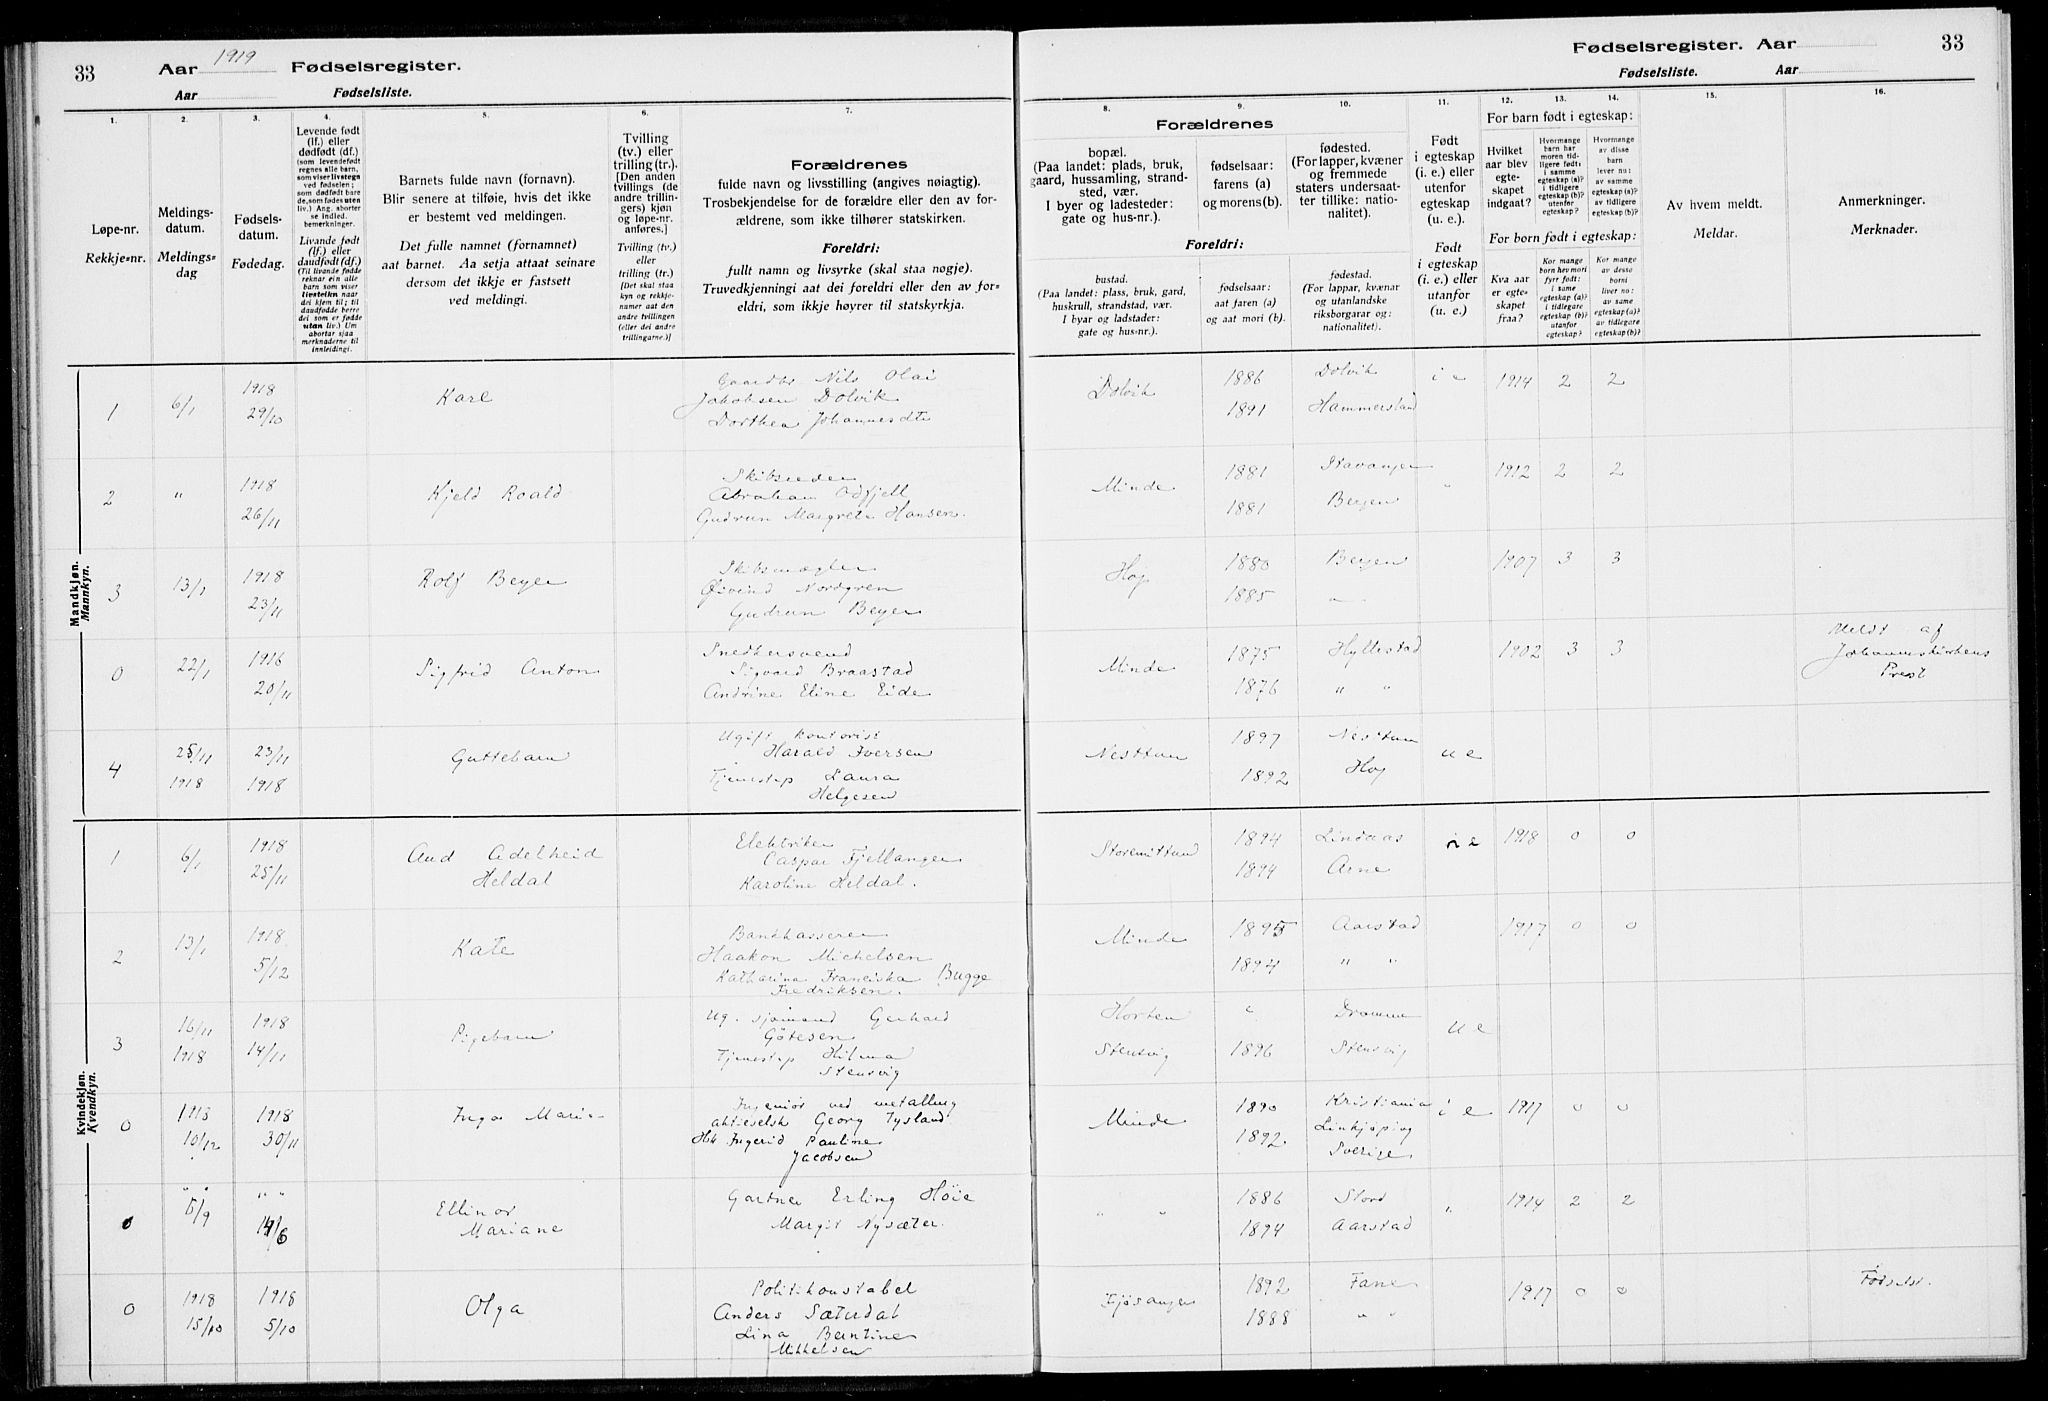 33
Aar 1919 Fødselsregister.
Aar Fødselsliste.
Fødselsregister. Aar
33
Fødselsliste. Aar
1.
Løpe-nr.
Rekkje-nr.
2.
Meldings-
datum.
Meldings-
dag
3.
Fødsels-
datum.
Fødedag.
4.
Levende født
(lf.) eller
dødfødt (df.)
(som levendefødt
regnes alle barn,
som viser livstegn
ved fødselen;
som dødfødt bare
de, som fødes uten
liv.) Ang. aborter
se indled.
bemerkninger.
Livande født
(lf.) eller
daudfødt (df.)
(Til livande fødde
reknar ein alle
barn som viser
livsteikn naar
dei kjem til; til
daudfødde berre
dei som er fødde
utan liv.) Um
abortar sjaa
merknaderne til
innleidingi.
5.
Barnets fulde navn (fornavn).
Blir senere at tilføie, hvis det ikke
er bestemt ved meldingen.
Det fulle namnet (fornamnet)
aat barnet. Aa setja attaat seinare
dersom det ikkje er fastsett
ved meldingi.
6.
Tvilling
(tv.) eller
trilling (tr.).
[Den anden
tvillings (de
andre trillin-
gers) kjøn
og løpe-nr.
anføres.]
Tvilling (tv.)
eller
trilling (tr.)
[Det skal staa
kyn og rekkje-
numer aat den
andre tvillingen
(eller dei andre
trillingarne.)]
7.
Forældrenes
fulde navn og livsstilling (angives nøiagtig).
Trosbekjendelse for de forældre eller den av for-
ældrene, som ikke tilhører statskirken.
Foreldri:
fullt namn og livsyrke (skal staa nøgje).
Truvedkjenningi aat dei foreldri eller den av for-
eldri, som ikkje høyrer til statskyrkja.
Forældrenes
8.
bopæl.
(Paa landet: plads, bruk,
gaard, hussamling, strand-
sted, vær.
I byer og ladesteder:
gate og hus-nr.).
9.
fødselsaar:
farens (a)
og morens (b).
10.
fødested.
(For lapper, kvæner
og fremmede
staters undersaat-
ter tillike: natio-
nalitet).
Foreldri:
bustad.
(Paa landet: plass, bruk, gard,
huskrull, strandstad, vær.
I byar og ladstader:
gate og hus-nr.).
fødselsaar:
aat faren (a)
og aat mori (b).
fødestad.
(For lappar, kvænar
og utanlandske
riksborgarar og:
nationalitet).
11.
Født
i egteskap
(i. e.) eller
utenfor
egteskap
(u. e.).
Født
i egteskap
(i. e.) eller
utanfor
(u. e.)
For barn født i egteskap:
12.
Hvilket
aar blev
egte-
skapet
indgaat?
13.
Hvormange
barn har
moren tid-
ligere født:
i samme
egteskap (a)?
i tidligere
egteskap (b)?
utenfor
egteskap?
14.
Hvormange
av disse
barn
lever nu:
av samme
egteskap (a)?
av tidligere
egteskap (b)?
For born født i egteskap:
Kva aar
er egte-
skapet
fraa?
Kor mange
born hev mori
fyrr født:
i same
egteskap (a)?
i tidlegare
egteskap (b)?
utanfor
egteskap?
Kor mange
av desse
borni
liver no:
av same
egteskap (a)?
av tidlegare
egteskap (b)?
15.
Av hvem meldt.
Meldar.
16.
Anmerkninger.
Merknader.
Mandkjøn.
Mannkyn.
1 6/1 1918 29/10 Kare Gaardbr Nils Olai
Jakobsen Dolvik
Dorthea Johannesdtr
Dolvik 1886 1891 Dolvik Hammersland i e 1914 2 2
2 " 1918 26/11 Kjeld Roald Skibsreder
Abraham Odfjell
Gudrun Margrete Hansen.
Minde 1881 1881 Stavanger Bergen " 1912 2 2
3 13/1 1918 23/11 Rolf Beyer Skibsmægler
Øivind Nordgren
Gudrun Beyer
Hop 1880 1885 Bergen " 1907 3 3
0 22/1 1916 20/11 Sigfrid Anton Snedkersvend
Sigvard Braastad
Andrine Eline Eide
Minde 1875 1876 Hyllestad " " 1902 3 3 Meldt af
Johanneskirkens
Prest
4 25/11 1918 23/11 1918 Guttebarn Ugift kontorist
Harald Iversen
Tjenestep Laura
Helgesen
Nesttun 1897 1892 Nesttun Hop u e
Kvindekjøn.
Kvendkyn.
1 6/1 1918 25/11 Aud Adelheid
Heldal
Elektriker
Caspar Fjellanger
Karoline Heldal.
Storemittun 1894 1894 Lindaas Arne i e 1918 0 0
2 13/1 1918 5/12 Kate Bankkasserer
Haakon Michelsen
Katharina Franciska Bugge
Fredriksen.
Minde 1895 1894 Aarstad " " 1917 0 0
3 16/11 1918 1918 14/11 Pigebarn Ug. sjømand Gerhard
Götesen
Tjenestep Hilma
Stensvig
Horten Stensvig " 1896 Dramme Stensvig u e
0 1913 10/12 1918 30/11 Inga Marie Ingeniør ved metalling
aktieselsk Georg Tysland
Hk Ingerid Pauline
Jacobsen
Minde 1890 1892. Kristiania
Linkjøping
Sverige
i e 1917 0 0
0 " " 5/9 " " 14/6 Ellinor
Mariane
Gartner Erling Høie
Margit Nysæter.
" " 1886 1894 Stord Aarstad " 1914 2 2
0 1918 15/10 1918 5/10 Olga Politikonstabel
Anders Sæterdal
Lina Bentine
Mikkelsen
Fjøsanger 1892 1888 Fane " " 1917 0 0 Fødselst.